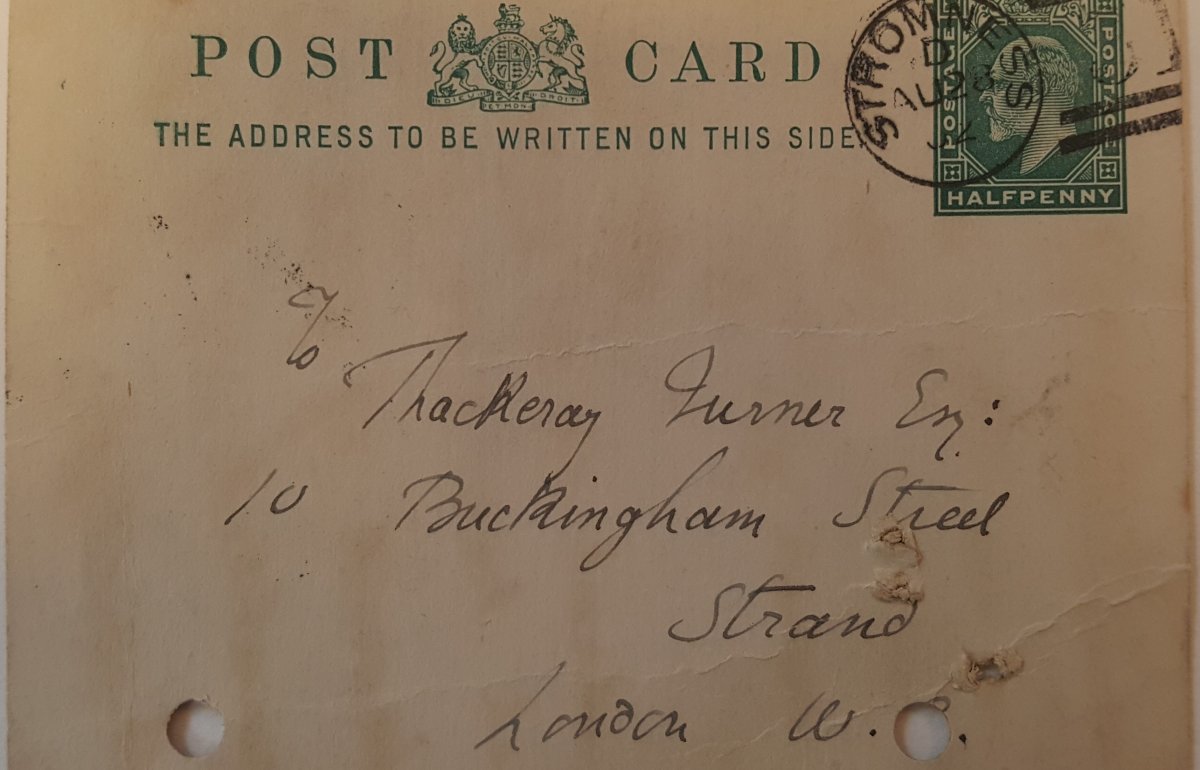 POST CARD
DIEU ET MON DROIT
THE ADDRESS TO BE WRITTEN ON THIS SIDE.
STROMNESS
D
AU 28
POSTAGE
HALFPENNY
To
Thackeray Turner Esq:
10 Buckingham Street
Strand
London W.